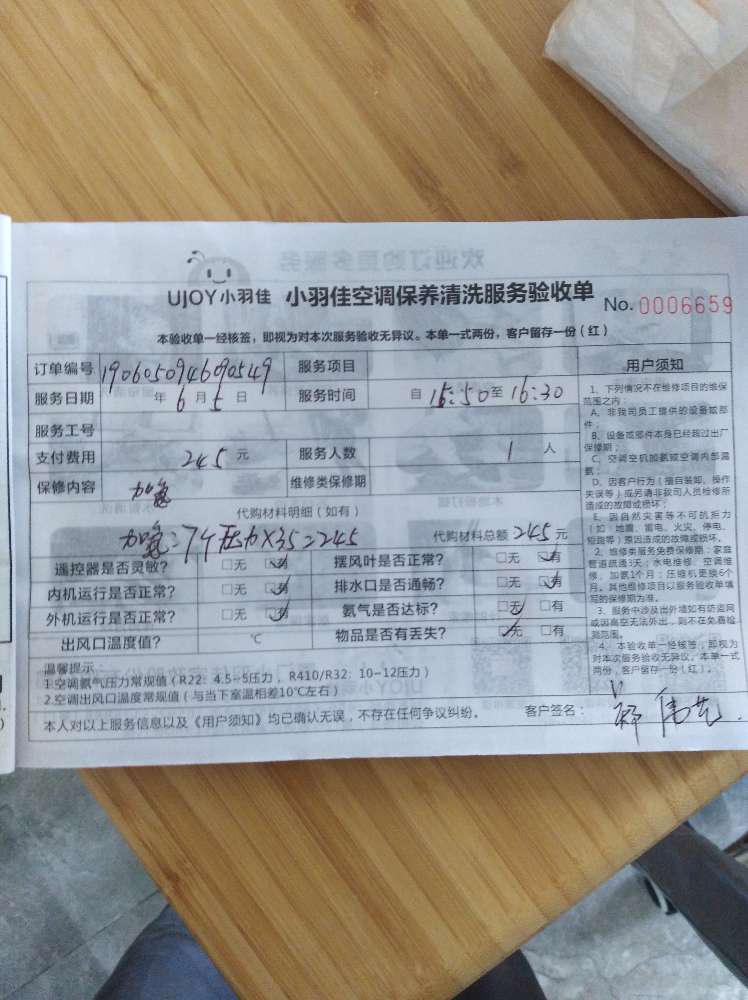 欢迎订购更多服务
UJOY小羽佳 小羽佳空调保养清洗服务验收单 No.0006659
本验收单一经核签，即视为对本次服务验收无异议。本单一式两份，客户留存一份（红）
订单编号 1906050946090549 服务项目
服务日期 年 6 月 5 日 服务时间 自 15:50 至 16:30
服务工号
支付费用 245 元 服务人数 1 人
保修内容 加氨 维修类保修期
代购材料明细（如有）
加氨=7个压力×35=245 代购材料总额 245 元
遥控器是否灵敏? □无 □有 摆风叶是否正常? □无 □有
内机运行是否正常? □无 □有 排水口是否通畅? □无 □有
外机运行是否正常? □无 □有 氨气是否达标? □无 □有
出风口温度值? ℃ 物品是否有丢失? □无 □有
温馨提示：
1.空调氨气压力常规值（R22：4.5~5压力，R410/R32：10-12压力）
2.空调出风口温度常规值（与当下室温相差10℃左右）
本人对以上服务信息以及《用户须知》均已确认无误，不存在任何争议纠纷。 客户签名：
用户须知
1、下列情况不在维修项目的维保
范围之内：
A、非我司员工提供的设备或部
件；
B、设备或部件本身已经超过出厂
保修期；
C、空调空机加氨或空调内部漏
氨；
D、因客户行为（擅自装卸、操作
失误等）或另请非我司人员检修所
造成的故障或损坏；
E、因自然灾害等不可抗拒力
（如：地震、雷电、火灾、停电、
短路等）原因造成的故障或损坏。
2、维修类服务免费保修期：家庭
管道疏通3天；水电维修、空调维
修、加氨1个月；压缩机更换6个
月。其他维修项目以服务验收单填
写的保修期为准。
3、服务中涉及出外墙如有防盗网
或因高空无法外出，则不在免费检
测范围。
4、本验收单一经核签，即视为
对本次服务验收无异议。本单一式
两份，客户留存一份（红）。